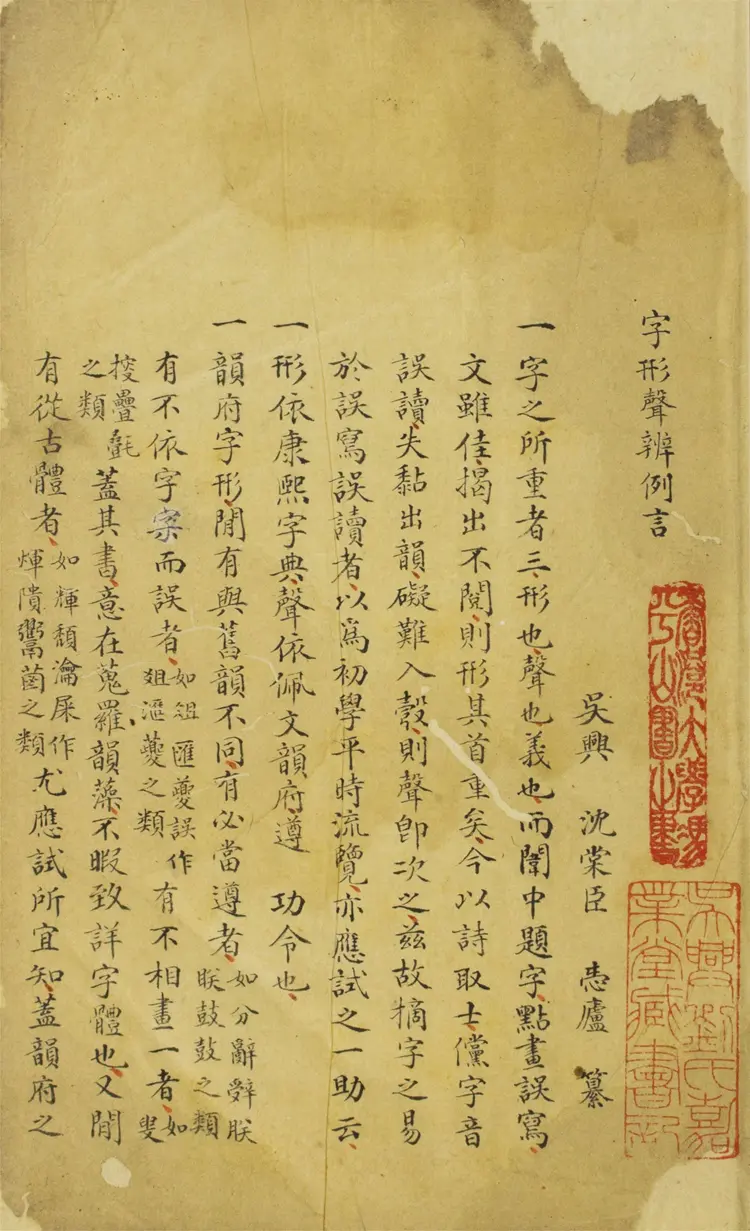 字形聲辨例言
吳興 沈棠臣 恚廬 纂
一字之所重者三形也聲也義也而闈中題字點畫誤寫
文雖佳揭出不閱則形其首重矣今以詩取士儻字音
誤讀失黏出韻礙難入彀則聲卽次之茲故摘字之易
於誤寫誤讀者以爲初學平時流覽亦應試之一助云
一形依康熙字典聲依佩文韻府遵 功令也
一韻府字形閒有與舊韻不同有必當遵者如分辭辤朕
朕鼓鼔之類
有不依字案而誤者如俎匯蘷誤作
爼滙夔之類有不相畫一者如叟
搜疊氎
之類蓋其書意在蒐羅韻藻不暇致詳字體也又閒
有從古體者如輝頹瀹屎作
煇隤鬻菌之類尤應試所宜知蓋韻府之
吳興劉氏嘉
業堂藏書記